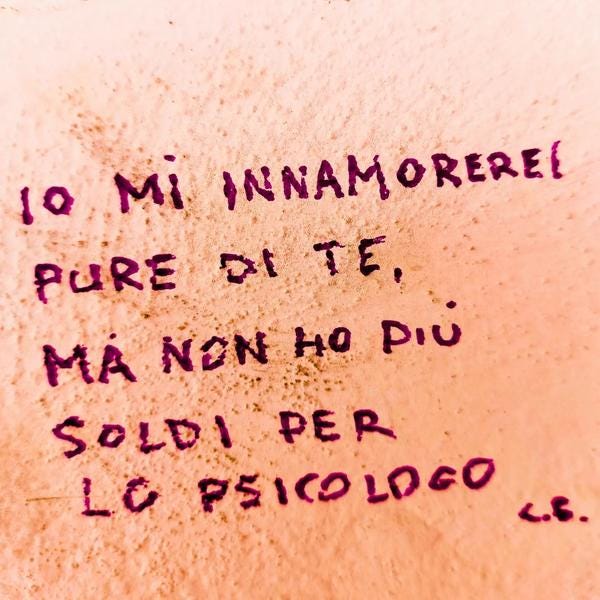 IO MI INNAMOREREI
PURE DI TE,
MA NON HO PIÙ
SOLDI PER
LO PSICOLOGO
C.B.